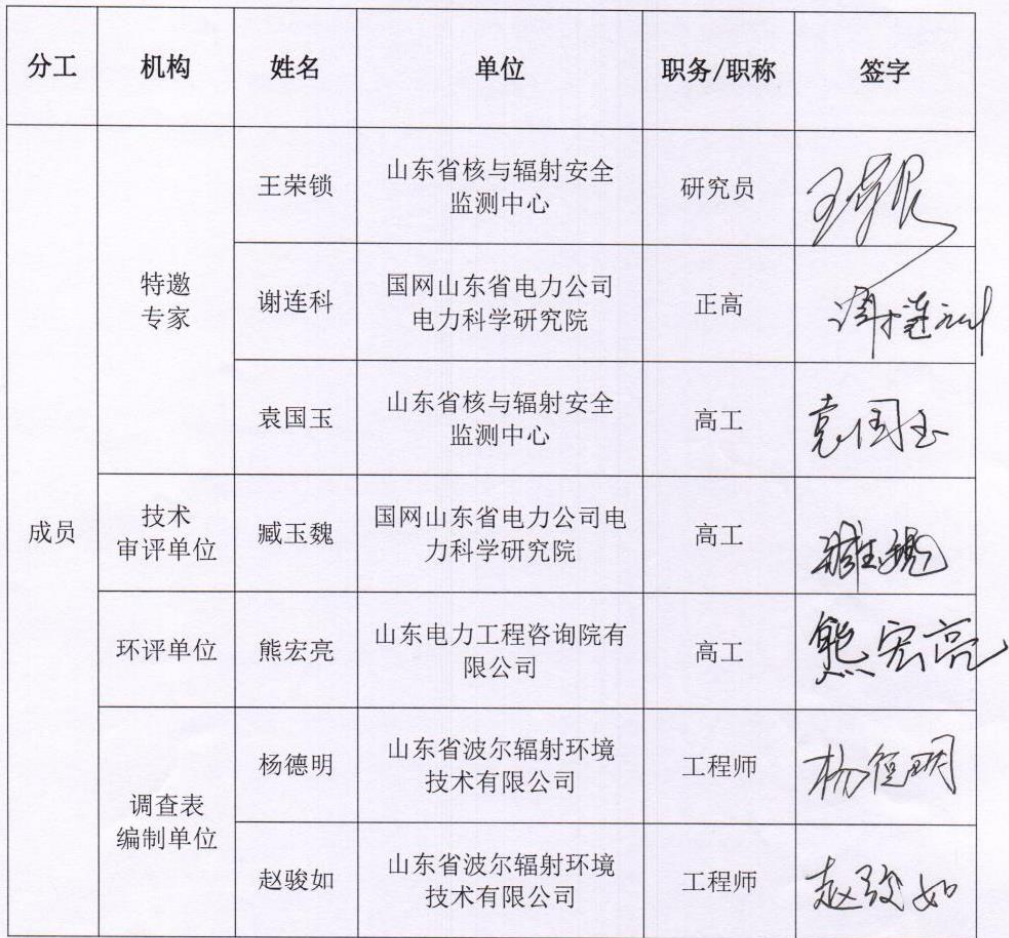 分工 机构 姓名 单位 职务/职称 签字
成员
特邀
专家
王荣锁
山东省核与辐射安全
监测中心
研究员
谢连科
国网山东省电力公司
电力科学研究院
正高
谢连科
袁国玉
山东省核与辐射安全
监测中心
高工
袁国玉
技术
审评单位
臧玉魏
国网山东省电力公司电
力科学研究院
高工
臧玉魏
环评单位
熊宏亮
山东电力工程咨询院有
限公司
高工
熊宏亮
调查表
编制单位
杨德明
山东省波尔辐射环境
技术有限公司
工程师
杨德明
赵骏如
山东省波尔辐射环境
技术有限公司
工程师
赵骏如